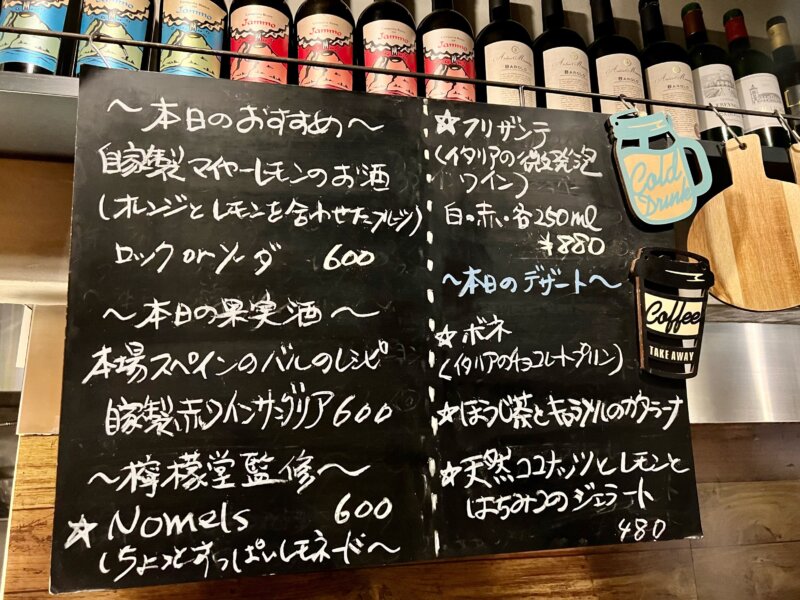 Jammo
Jammo
Jammo
BAROLO
BAROLO
BAROLO
~本日のおすすめ~
自家製マイヤーレモンのお酒
(オレンジとレモンを合わせたフルーツ)
ロック or ソーダ 600
~本日の果実酒~
本場スペインのバルのレシピ
自家製赤ワインサングリア 600
~檸檬堂監修~
☆ Nomels 600
(ちょっとすっぱいレモネード~
☆フリザンテ
(イタリアの微発泡
ワイン)
白・赤・各250ml
¥880
~本日のデザート~
☆ボネ
(イタリアのチョコレートプリン)
☆ほうじ茶とキャラメルのカタラーナ
☆天然ココナッツとレモンと
はちみつのジェラート
480
Cold
Drink
Coffee
TAKE AWAY